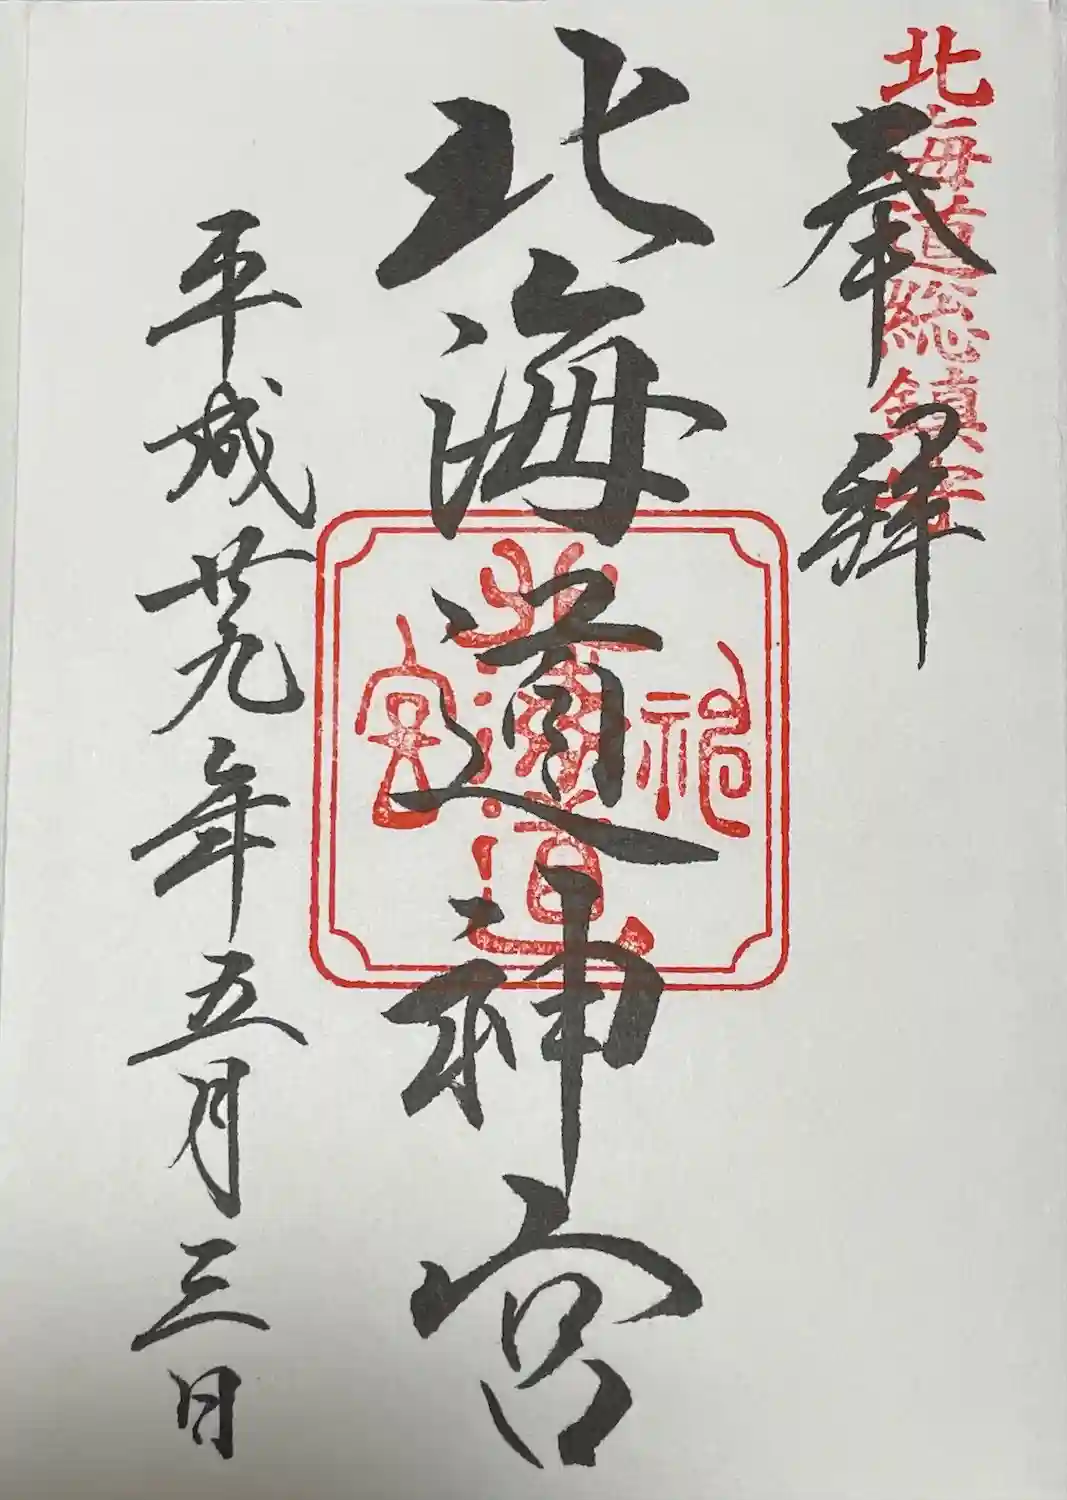 北海道総鎮守
奉拝
北海道神宮
北海道神宮
平成廿九年五月三日